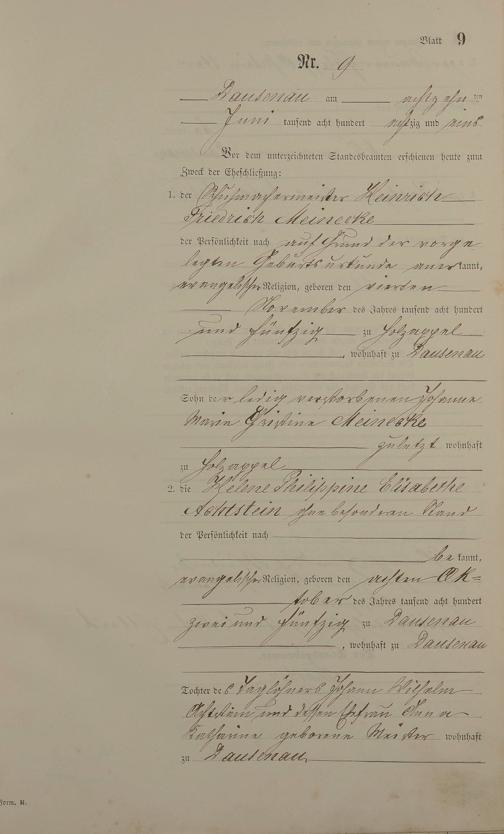 Blatt 9
Nr. 9
Dausenau am achtzehn ten
Juni tausend acht hundert achtzig und eins
Vor dem unterzeichneten Standesbeamten erschienen heute zum
Zweck der Eheschließung:
1. der Schuhmachermeister Heinrich
Friedrich Meinecke
der Persönlichkeit nach auf Grund der vorge
legten Geburtsurkunde aner kannt,
evangelischer Religion, geboren den vierten
November des Jahres tausend acht hundert
und fünfzig zu Holzappel
, wohnhaft zu Dausenau
Sohn der ledig verstorbenen Johanne
Marie Christine Meinecke
zuletzt wohnhaft
zu Holzappel
2. die Helene Philippine Elisabethe
Achtstein ohne besonderen Stand
der Persönlichkeit nach
be kannt,
evangelischer Religion, geboren den achten Ok=
tober des Jahres tausend acht hundert
zwei und fünfzig zu Dausenau
, wohnhaft zu Dausenau
Tochter des Taglöhners Johann Wilhelm
Achtstein und dessen Ehefrau Anna
Katharine geborene Meister wohnhaft
zu Dausenau
Form. B.